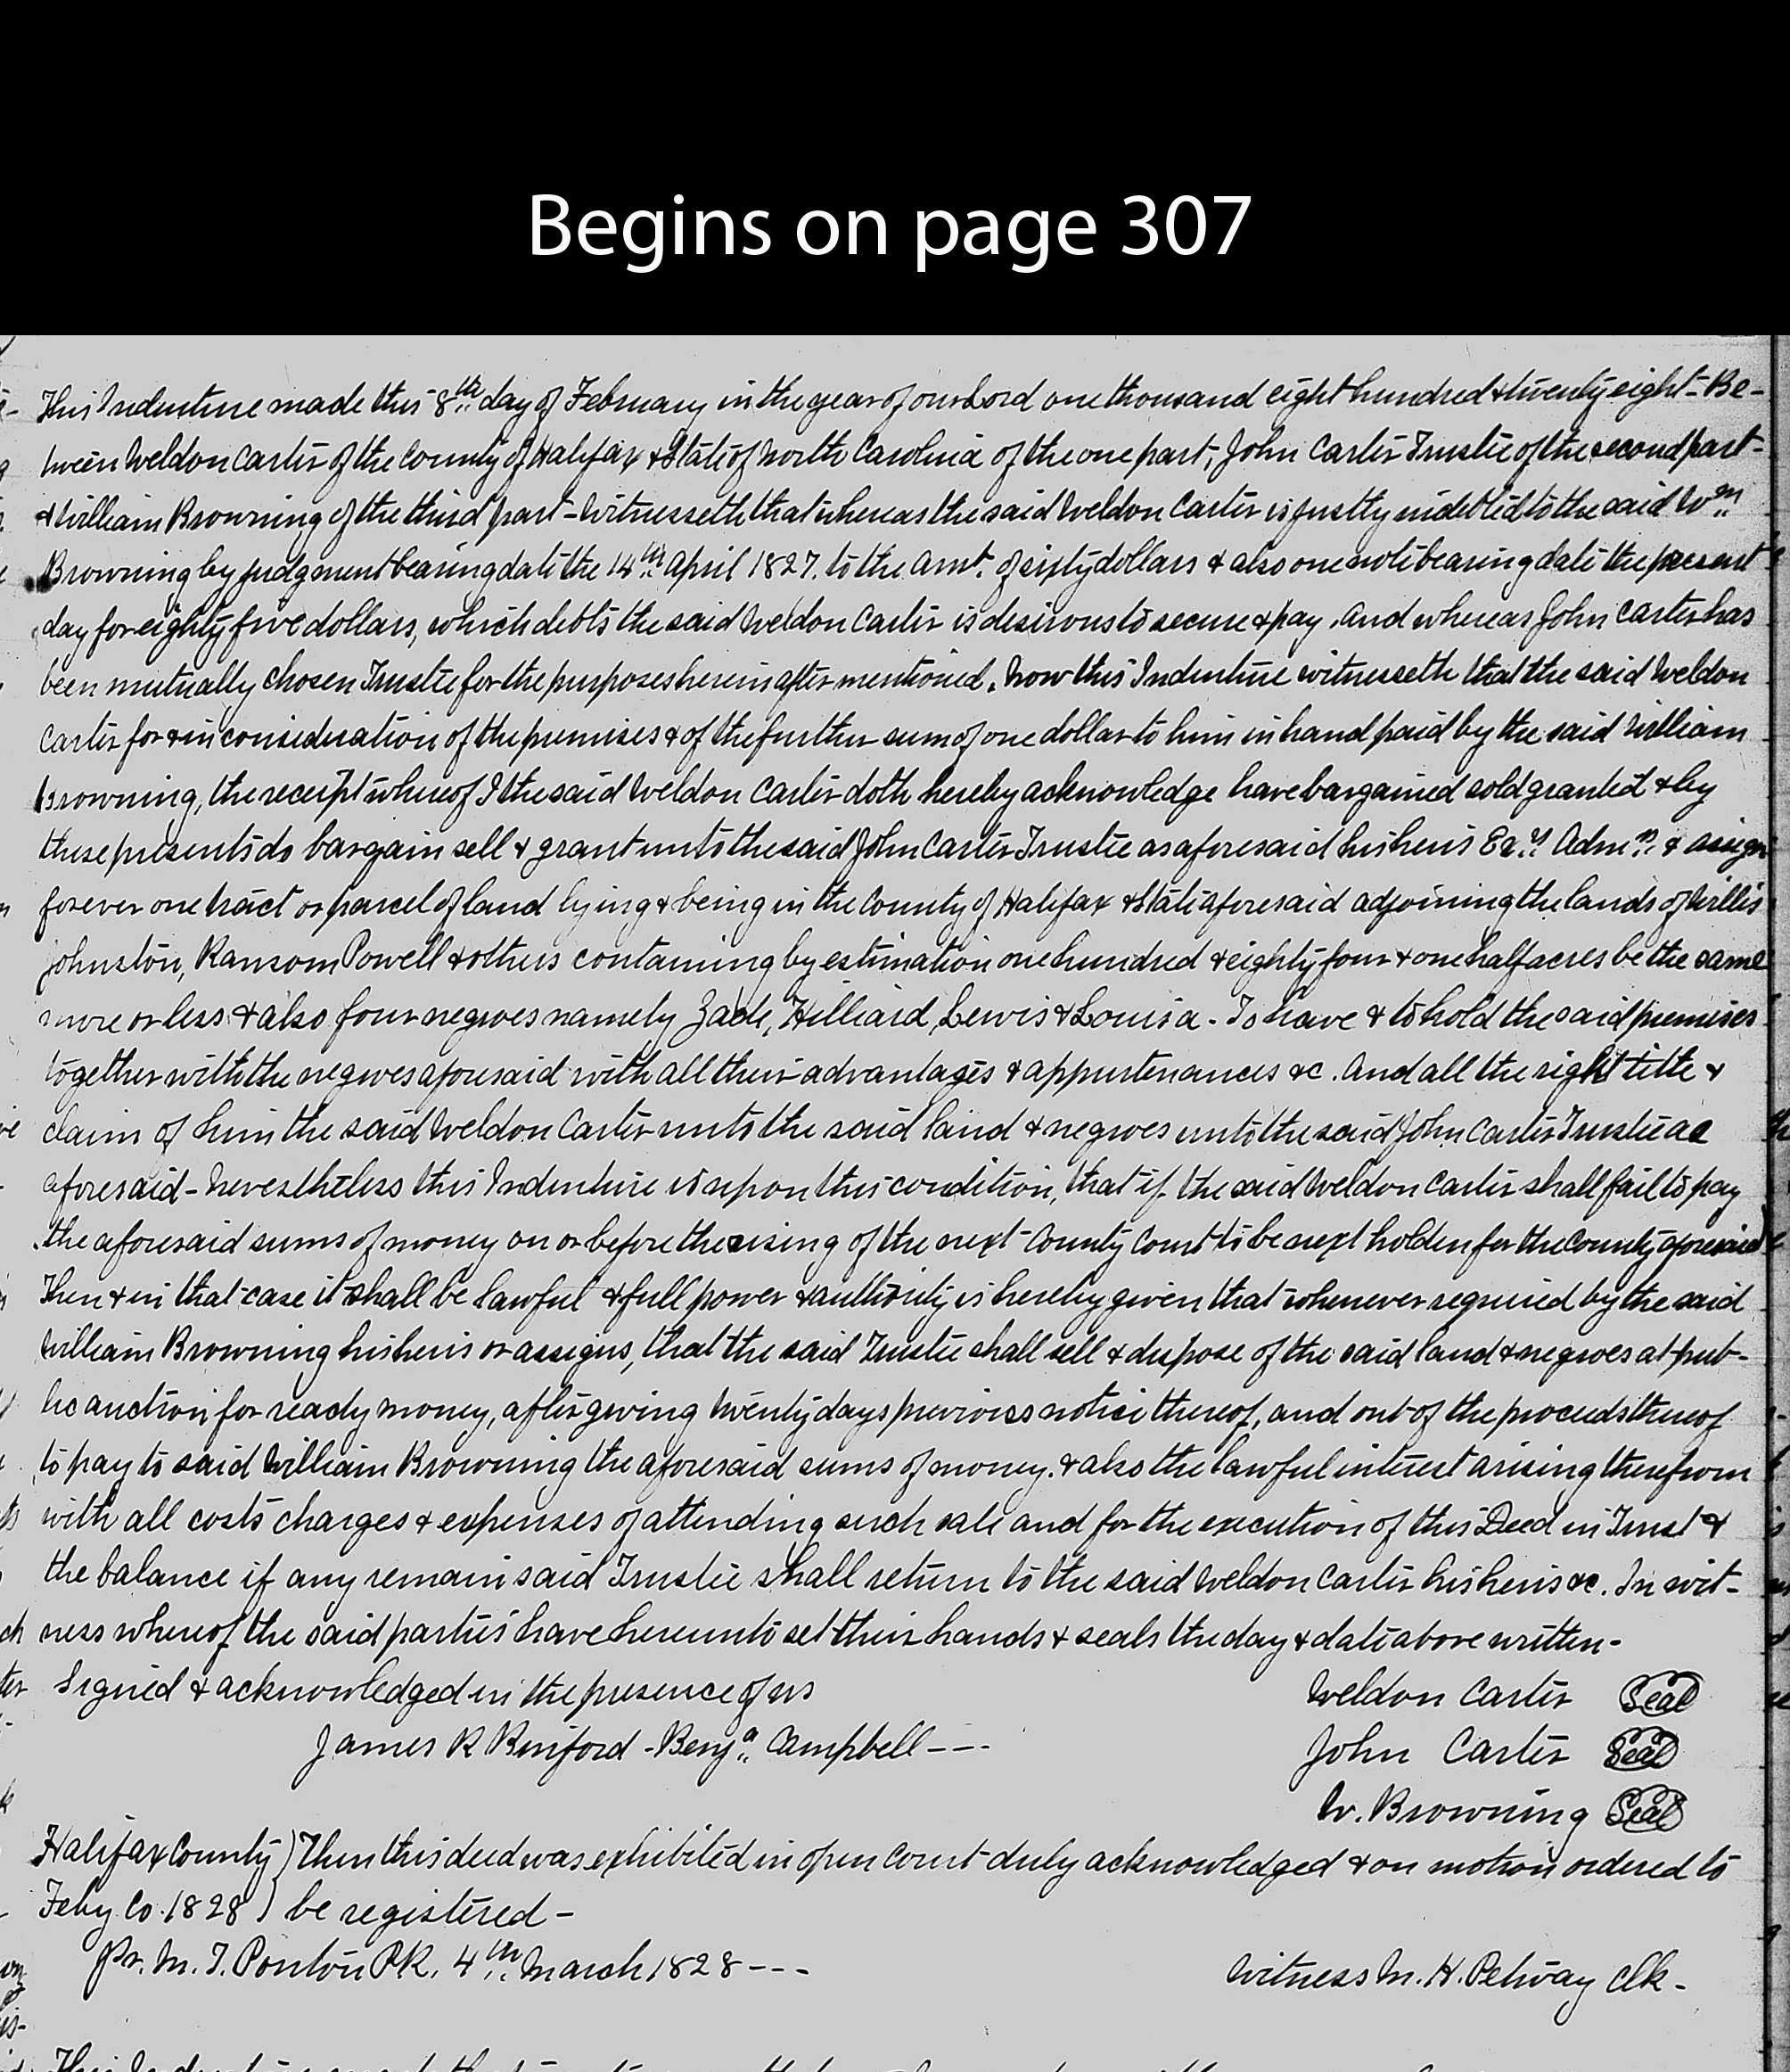 Begins on page 307
This Indenture made this 8th day of February in the year of our Lord one thousand eight hundred & twenty eight - Be-
tween Weldon Carter of the County of Halifax & State of North Carolina of the one part, John Carter Trustee of the second part -
& William Browning of the third part - Witnesseth that whereas the said Weldon Carter is justly indebted to the said Wm
Browning by judgment bearing date the 14th April 1827. to the amt. of sixty dollars & also one note bearing date the present
day for eighty five dollars, which debts the said Weldon Carter is desirous to secure & pay. And whereas John Carter has
been mutually chosen Trustee for the purposes herein after mentioned. Now this Indenture witnesseth that the said Weldon
Carter for & in consideration of the premises & of the further sum of one dollar to him in hand paid by the said William
Browning, the receipt whereof I the said Weldon Carter doth hereby acknowledge have bargained sold granted & by
these presents do bargain sell & grant unto the said John Carter Trustee as aforesaid his heirs Exrs Admrs & assigns
forever one tract or parcel of land lying & being in the County of Halifax & State aforesaid adjoining the lands of Willis
Johnston, Ransom Powell & others containing by estimation one hundred & eighty four & one half acres be the same
more or less & also four negroes namely Zack, Hilliard, Lewis & Louisa - To have & to hold the said premises
together with the negroes aforesaid with all their advantages & appurtenances &c. And all the right title &
claim of him the said Weldon Carter unto the said land & negroes unto the said John Carter Trustee as
aforesaid - Nevertheless this Indenture is upon this condition, that if the said Weldon Carter shall fail to pay
the aforesaid sums of money on or before the rising of the next County Court to be next holden for the County aforesaid
Then & in that case it shall be lawful & full power & authority is hereby given that whenever required by the said
William Browning his heirs or assigns, that the said Trustee shall sell & dispose of the said land & negroes at pub-
lic auction for ready money, after giving twenty days previous notice thereof, and out of the proceeds thereof
to pay to said William Browning the aforesaid sums of money. & also the lawful interest arising therefrom
with all costs charges & expenses of attending such sale and for the execution of this Deed in Trust &
the balance if any remain said Trustee shall return to the said Weldon Carter his heirs &c. In wit-
ness whereof the said parties have hereunto set their hands & seals the day & date above written -
Signed & acknowledged in the presence of us Weldon Carter Seal
James R Binford - Benja Campbell --- John Carter Seal
W. Browning Seal
Halifax County ) Then this deed was exhibited in open Court duly acknowledged & on motion ordered to
Feby Co. 1828 ) be registered -
Pr. M. T. Ponton P.R. 4th March 1828 --- Witness M. H. Petway Clk -